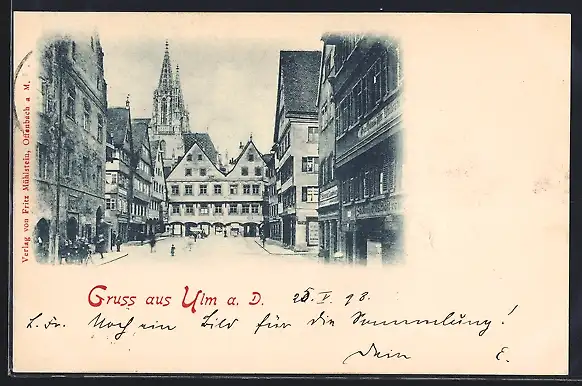 Verlag von Fritz Mühlstein, Offenbach a M.
Gruss aus Ulm a. D. 25. V. 98.
L. Fr. Noch ein Bild für die Sammlung!
Dein E.